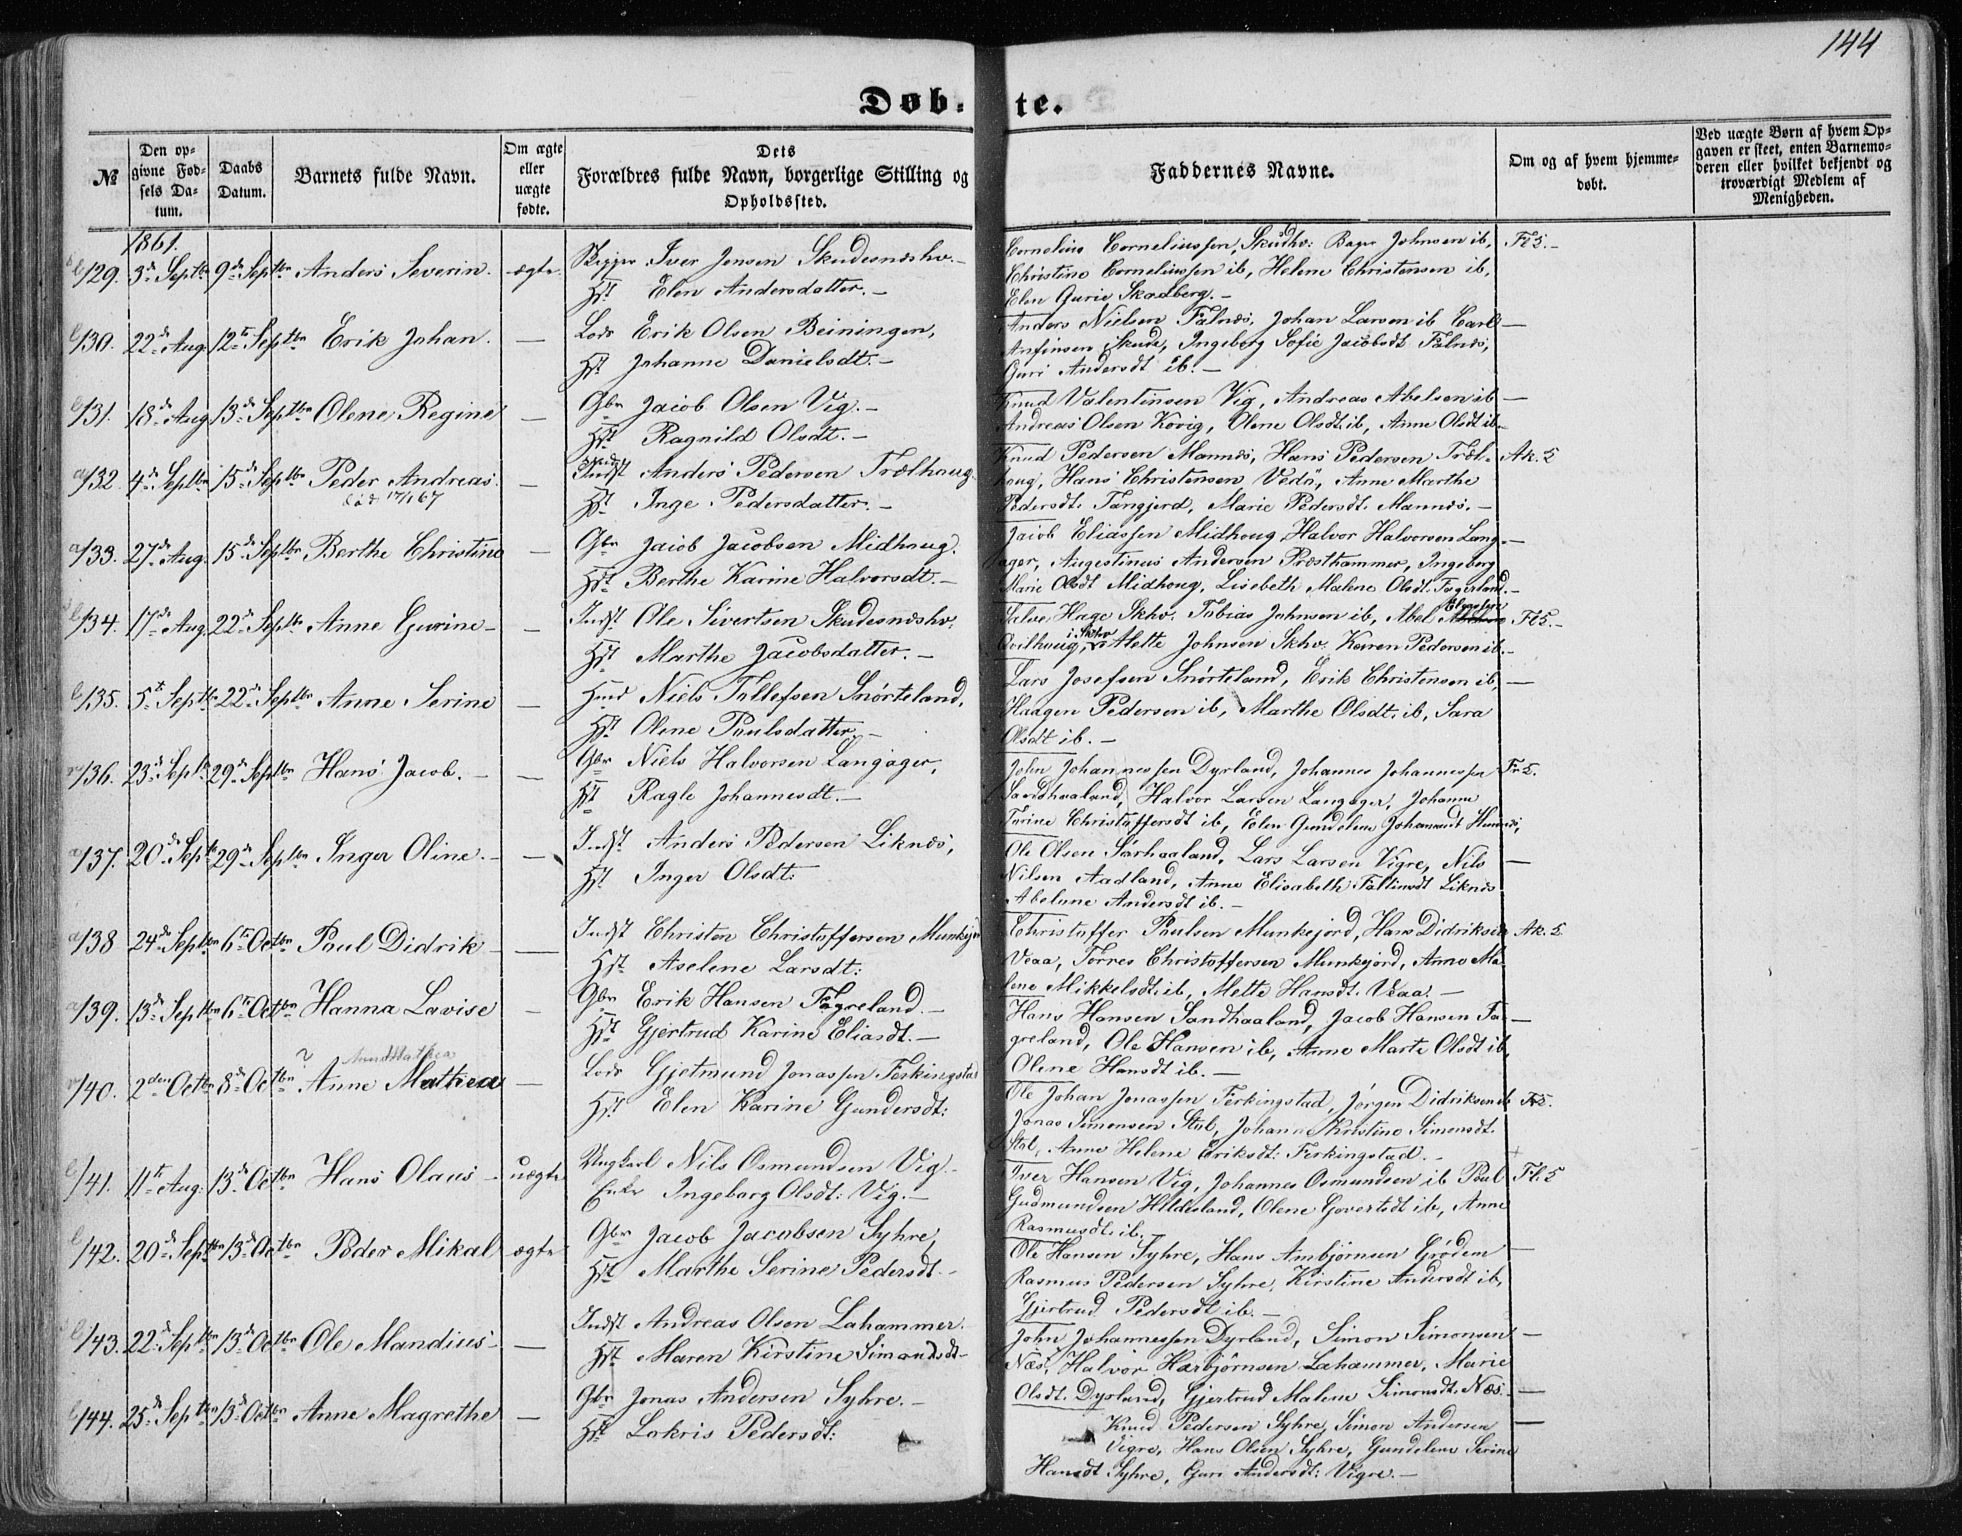 144
Døb- te.
№
Den op-
givne Fød-
sels Da-
tum.
Daabs
Datum.
Barnets fulde Navn.
Om ægte
eller
uægte
fødte.
Dets
Forældres fulde Navn, borgerlige Stilling og
Opholdssted.
Faddernes Navne.
Om og af hvem hjemme-
døbt.
Ved uægte Børn af hvem Op-
gaven er skeet, enten Barnemo-
deren eller hvilket bekjendt og
troværdigt Medlem af
Menigheden.
1861.
b/129. 3de Septbr 9de Septbr Anders Severin. ægte Skipper Iver Jensen Skudesnæshv.
Hst Elen Andersdatter.
Cornelius Corneliussen, Skudhv: Johnsen ib, Fl 5.
Christine Corneliussen ib, Helene Christensen ib,
Elen Gurie Skadberg.
b/130. 22de Aug. 12te Septbr Erik Johan. — Lods Erik Olsen Beiningen,
Hst Johanne Danielsdt.
Anders Nielsen Falnæs, Johan Larsen ib Carl
Anfinsen Skude, Ingeborg Sofie Jacobsdt Falnæs,
Guri Andersdt ib.
b/131. 18de Aug. 13de Septbr Olene Regine — Gbr Jacob Olsen Vig.
Hst Ragnild Olsdt.
Knud Valentinsen Vig, Andreas Abelsen ib
Andreas Olsen Kovig, Olene Olsdt. ib, Anne Olsdt ib
a/132. 4de Septbr 15de Septbr Peder Andreas. — Indst Anders Pedersen Trælhaug
død 17/1 67
Hst Inge Pedersdatter.
Knud Pedersen Mannæs, Hans Pedersen Træl- Ak. 5
houg, Hans Christensen Vedø, Anne Marthe
Pedersdt. Tangjerd, Marie Pedersdt. Mannæs.
a/133. 27de Aug. 15de Septbr Berthe Christine — Gbr Jacob Jacobsen Midhoug.
Hst Berthe Karine Halvorsdt.
Jacob Eliassen Midhoug Halvor Halvorsen Lang-
ager, Augestinus Andersen Præsthammer, Ingeborg
Marie Olsdt Midhoug, Lisebeth Malene Olsdt. Fagerland.
b/134. 17de Aug. 22de Septbr Anne Gurine — Indst Ole Sivertsen Skudesnæshv.
Hst Marthe Jacobsdatter.
Salve Hage Skhv. Tobias Johnsen ib, Abel Fl 5.
i Skhv Mette Johnsen Skhv. Karen Pedersen ib.
b/135. 5te Septbr 22de Septbr Anne Serine — Hmd Niels Tollefsen Snørteland,
Hst Olene Poulsdatter.
Lars Josefsen Snørteland, Erik Christensen ib,
Haagen Pedersen ib, Marthe Olsdt. ib, Sara
Olsdt ib.
136. 23de Septbr 29de Septbr Hans Jacob. — Gbr Niels Halvorsen Langager,
Hst Ragle Johannesdt.
John Johannessen Dyrland, Johannes Johannessen Fr 5.
Sandhaaland, Halvor Larsen Langager, Johanne
Turine Christoffersdt ib, Elen Gundelene Johannesdt
a/137. 20de Septbr 29de Septbr Inger Oline. — Indst Anders Pedersen Liknæs,
Hst Inger Olsdt:
Ole Olsen Sørhaaland, Lars Larsen Vigre, Nils
Nilsen Aadland, Anne Elisabeth Faltinsdt Liknæs
Abelune Andersdt ib.
a/138 24de Septbr 6te Octbr Poul Didrik — Indst Christen Christoffersen Munkejord
Hst Aselene Larsdt:
Christoffer Poulsen Munkejord, Hans Didriksen Ak. 5.
Veaa, Torres Christoffersen Munkejord, Anne Ma-
lene Mikkelsdt. ib, Mette Hansdt. Veaa.
a/139. 13de Septbr 6te Octbr Hanna Lovise — Gbr Erik Hansen Fagreland.
Hst Gjertrud Karine Eliasdt.
Hans Hansen Sandhaaland, Jacob Hansen Fa-
greland, Ole Hansen ib, Anne Marte Olsdt ib,
Olene Hansdt ib.
140. 2den Octbr 8de Octbr Anne Mathea — Lods Gjetmund Jonassen Ferkingstad
Hst Elen Karine Gundersdt:
Ole Johan Jonassen Ferkingstad, Jørgen Didriksen ib Fr 5.
Jonas Simonsen Stol, Johanne Kristine Simonsdt.
Stol, Anne Helene Eriksdt: Ferkingstad.
b/141. 11te Aug. 13de Octbr Hans Olaus — uægte Ungkarl Nils Osmundsen Vig
Enke Ingeborg Olsdt: Vig.
Iver Hansen Vig, Johannes Osmundsen ib Poul Fl. 5
Gudmundsen Hildesland, Olene Govertsdt ib, Anne
Rasmusdt. ib.
b/142. 20de Septbr 13de Octbr Peder Mikal ægte Gbr Jacob Jacobsen Syhre,
Hst Marthe Serine Pedersdt.
Ole Hansen Syhre, Hans Ambjørnsen Grødem
Rasmus Pedersen Syhre, Kirstine Andersdt ib,
Gjertrud Pedersdt ib.
b/143. 22de Septbr 13de Octbr Ole Mandius — Indst Andreas Olsen Lahammer.
Hst Maren Kirstine Simonsdt
John Johannessen Dyrland, Simon Simonsen
Næs, Halvor Harbjørnsen Lahammer, Marie
Olsdt. Dyrland, Gjertrud Malene Simonsdt. Næs.
b/144. 25de Septbr 13de Octbr Anne Magrethe — Gbr Jonas Andersen Syhre.
Hst Lokris Pedersdt:
Knud Pedersen Syhre, Simon Andersen
Vigre, Hans Olsen Syhre, Gundelene Serine
Hansdt Syhre, Guri Andersdt: Vigre.